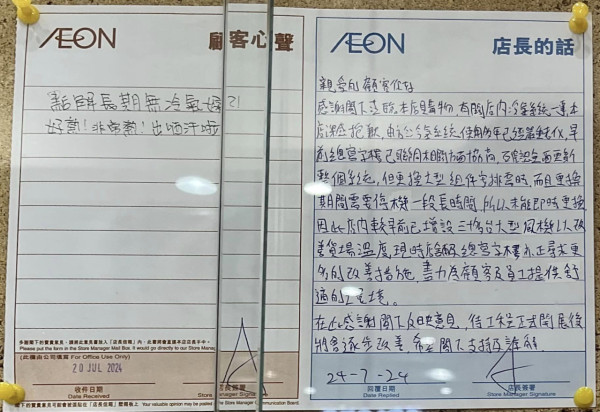 AEON
顧客心聲
點解長期無冷氣㗎?!
好熱!非常熱!出哂汗啦
多謝閣下的寶貴意見，請將此意見放入「店長信箱」內，此書將會直接交店長手中。
Please put the form in the Store Manager Mail Box. It would go directly to our Store Manag
(此欄由公司填寫 For Office Use Only)
20 JUL 2024
收件日期
Date Received
店長簽署
Store Manager Signature
AEON
店長的話
親愛的顧客你好
感謝閣下蒞臨本店購物,有關店內冷氣系統一事,本
店深感抱歉,由於冷氣系統使用多年已經舊化,早
前總寫字樓已聯絡相關方面協商,已確認全面更新
整個系統,但更換大型組件需排期,而且更換
期間需要停機一段長時間,所以未能即時更換
因此店內較早前已增設三播台大型風機以改
善賣場溫度,現時店舖及總寫字樓亦正尋求更
多的改善措施,盡力為顧客及員工提供舒
適的環境。
在此感謝閣下反映意見,待工程正式開展後
將會逐步改善,希望閣下支持及諒解
24-7-24
回覆日期
Date Replied
店長簽署
Store Manager Signature